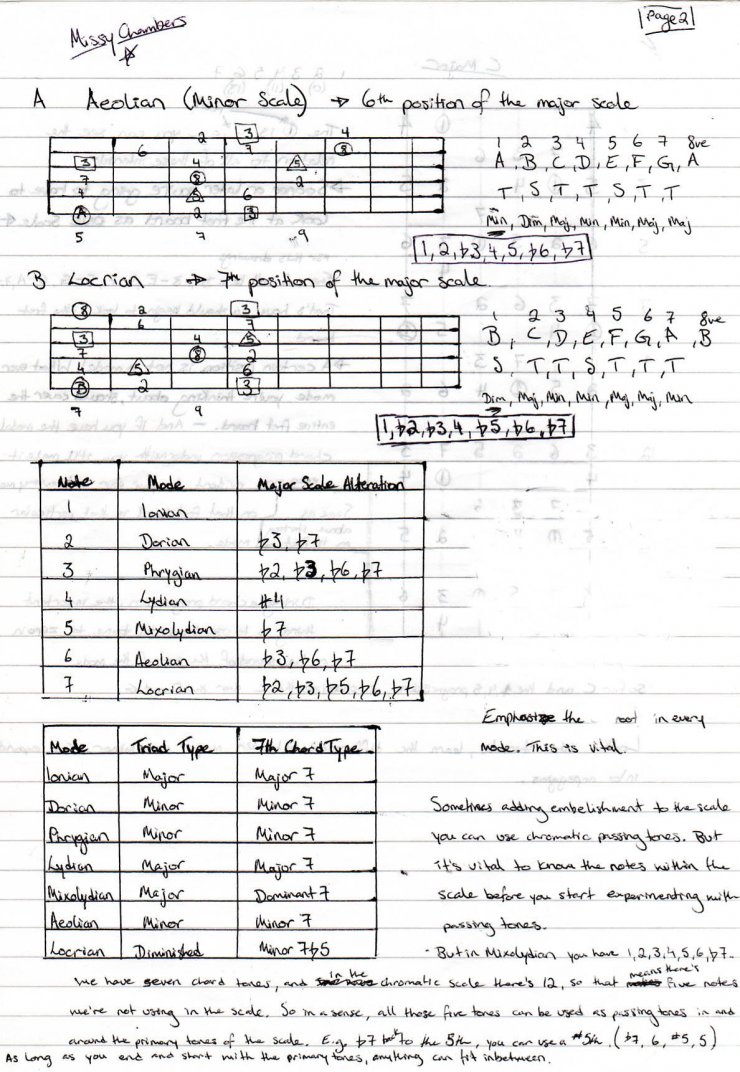 Missy Chambers
Page 2
A Aeolian (Minor Scale) → 6th position of the major scale
2 3 4
6 7 8
3 4 5
7 8 2
4 5 6
A 2 3
5 7 9
1 2 3 4 5 6 7 8ve
A, B, C, D, E, F, G, A
T, S, T, T, S, T, T
Min, Dim, Maj, Min, Min, Maj, Maj
1, 2, ♭3, 4, 5, ♭6, ♭7
B Locrian → 7th position of the major scale.
8 2 3
6 7
3 4 5
7 8 2
4 5 6
B 2 3
7 9
1 2 3 4 5 6 7 8ve
B, C, D, E, F, G, A, B
S, T, T, S, T, T, T
Dim, Maj, Min, Min, Maj, Maj, Min
1, ♭2, ♭3, 4, ♭5, ♭6, ♭7
Note Mode Major Scale Alteration
1 Ionian
2 Dorian ♭3, ♭7
3 Phrygian ♭2, ♭3, ♭6, ♭7
4 Lydian #4
5 Mixolydian ♭7
6 Aeolian ♭3, ♭6, ♭7
7 Locrian ♭2, ♭3, ♭5, ♭6, ♭7
Mode Triad Type 7th Chord Type
Ionian Major Major 7
Dorian Minor Minor 7
Phrygian Minor Minor 7
Lydian Major Major 7
Mixolydian Major Dominant 7
Aeolian Minor Minor 7
Locrian Diminished Minor 7♭5
Emphasize the root in every
mode. This is vital.
Sometimes adding embelishment to the scale
you can use chromatic passing tones. But
it's vital to know the notes within the
scale before you start experimenting with
passing tones.
- But in Mixolydian you have 1, 2, 3, 4, 5, 6, ♭7.
we have seven chord tones, and in the chromatic scale there's 12, so that means there's five notes
we're not using in the scale. So in a sense, all those five tones can be used as passing tones in and
around the primary tones of the scale. E.g. ♭7 back to the 5th, you can use a #5th. (♭7, 6, #5, 5)
As long as you end and start with the primary tones, anything can fit inbetween.